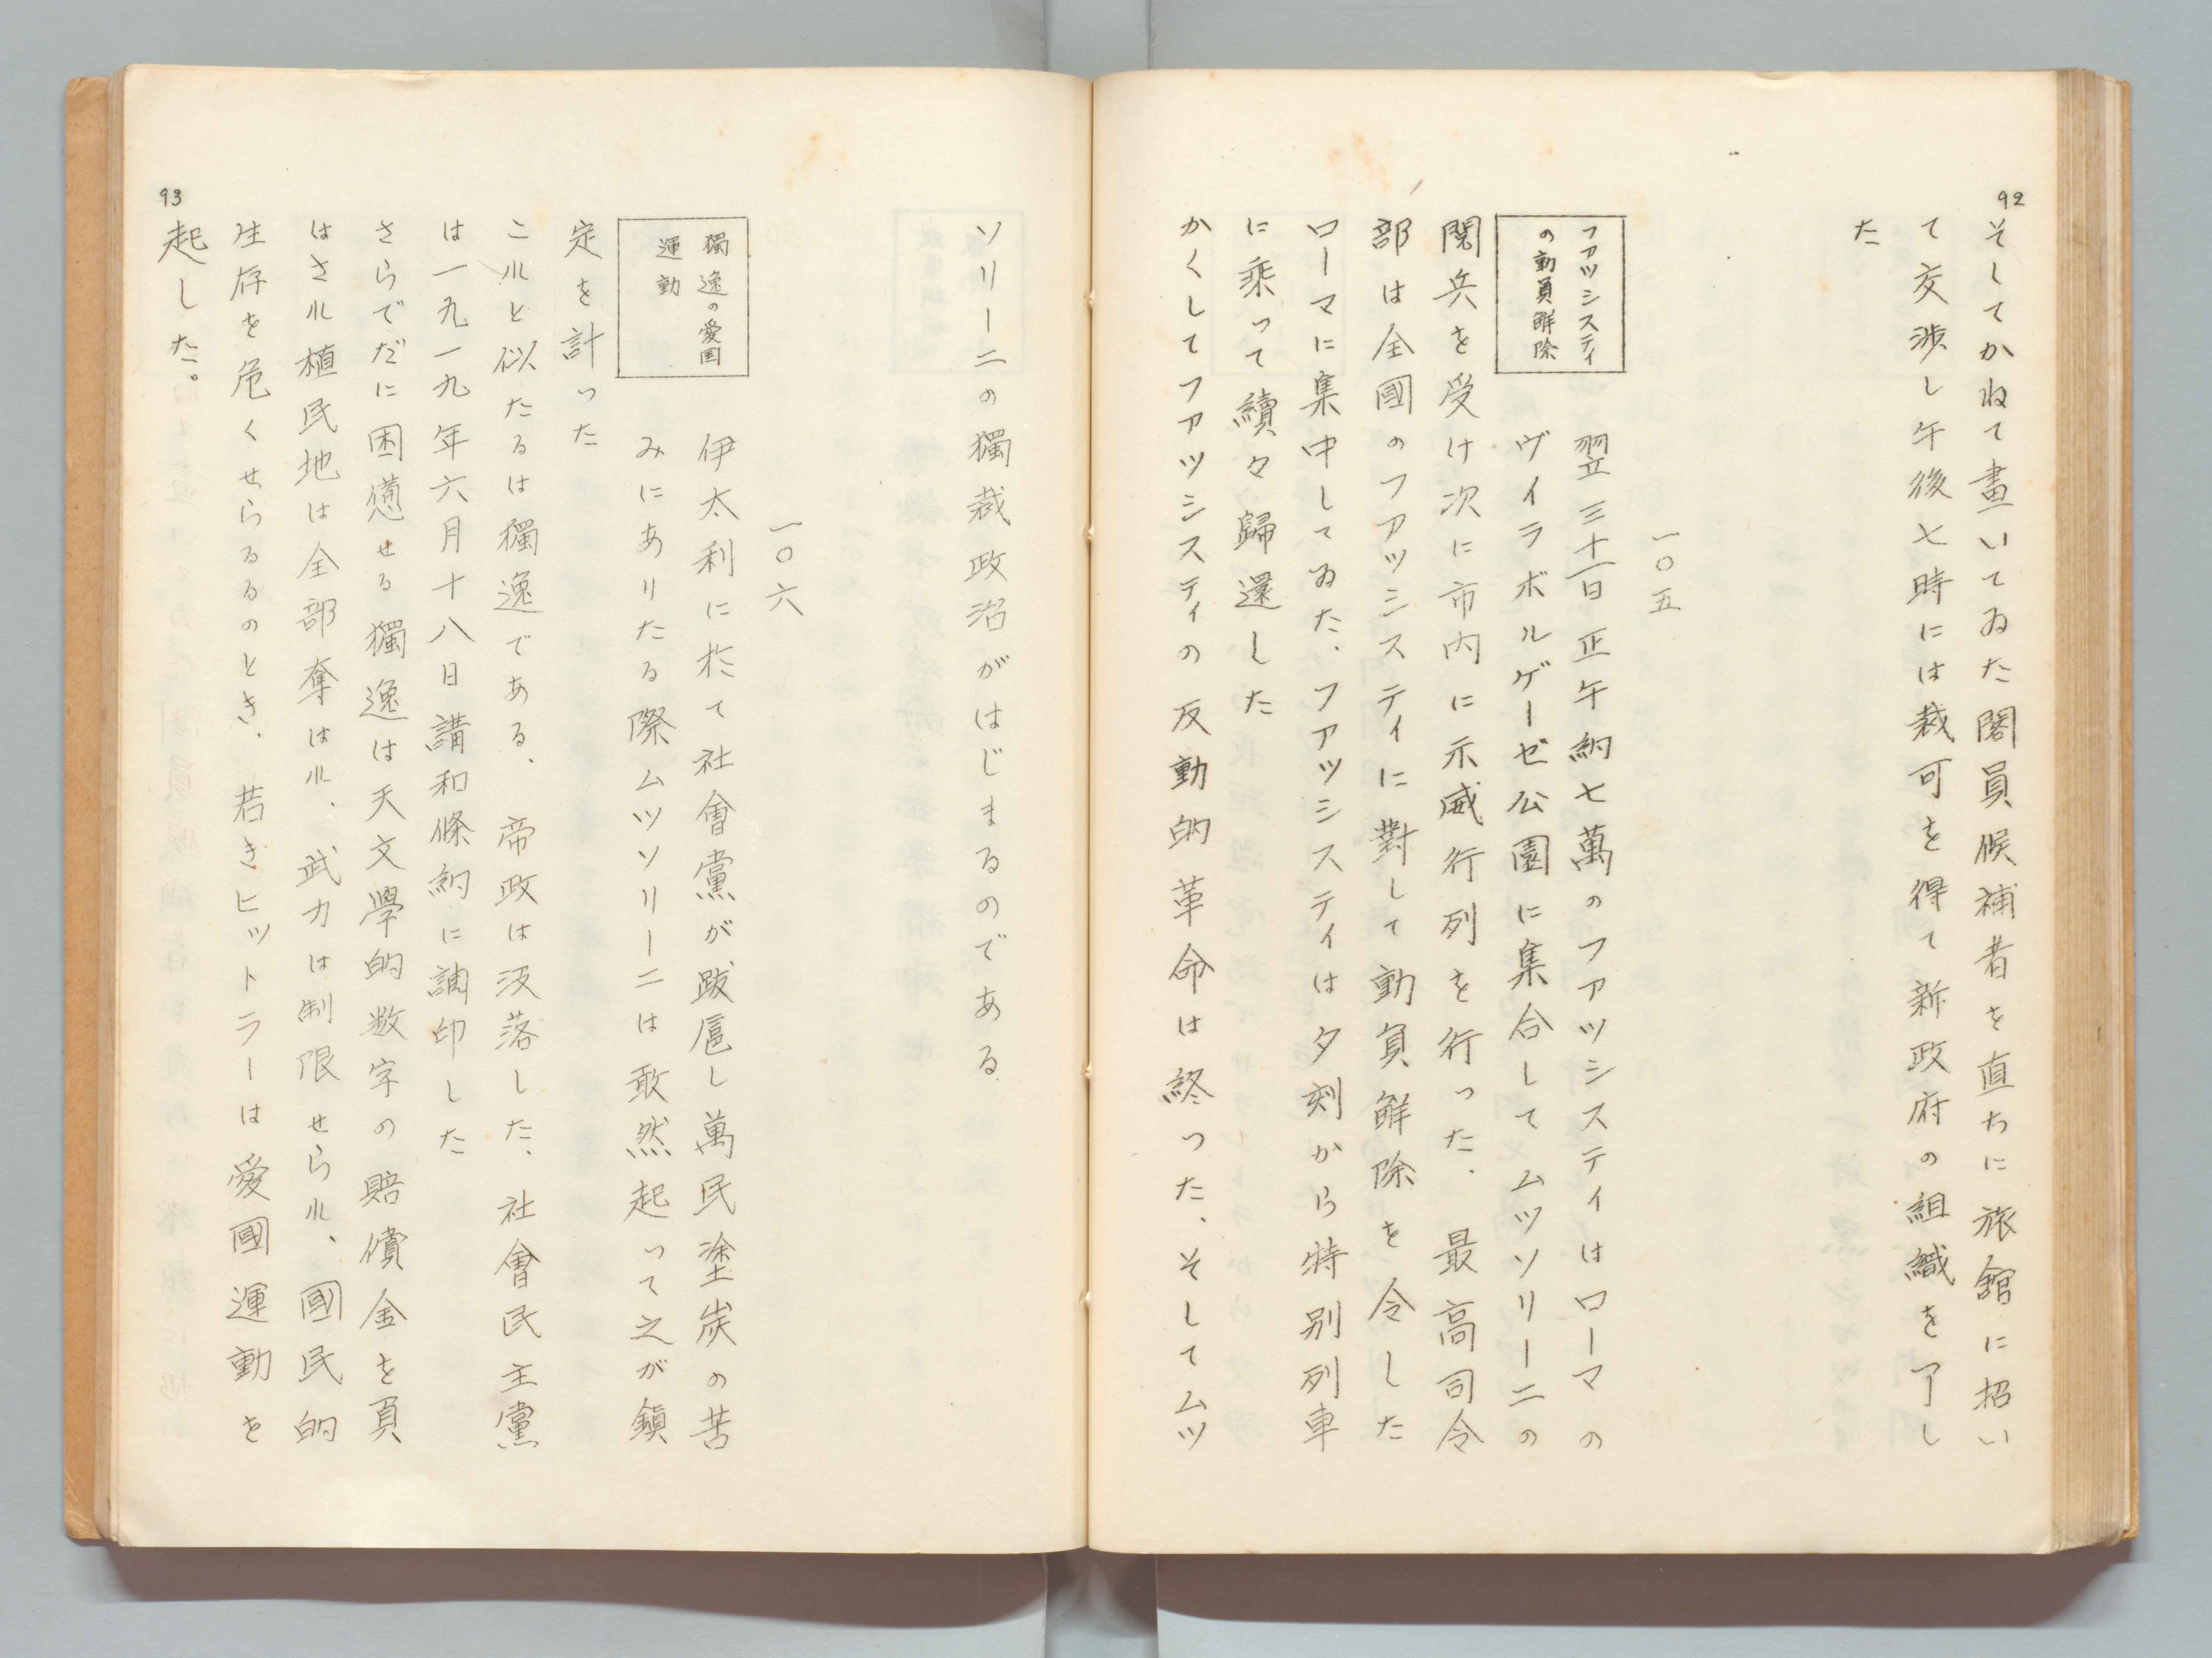 92
そしてかねて畫いてゐた閣員候補者を直ちに旅館に招い
て交渉し午後七時には裁可を得て新政府の組織を了し
た
一〇五
ファッシスティ
の動員解除
翌三十一日正午約七萬のファッシスティはローマの
ヴィラボルゲーゼ公園に集合してムッソリーニの
閲兵を受け次に市内に示威行列を行った、最高司令
部は全國のファッシスティに對して動員解除を令した
ローマに集中してゐた、ファッシスティは夕刻から特別列車
に乘って續々歸還した
かくしてファッシスティの反動的革命は終った、そしてムッ
ソリーニの獨裁政治がはじまるのである
一〇六
獨逸の愛国
運動
伊太利に於て社會黨が跋扈し萬民塗炭の苦
みにありたる際ムッソリーニは敢然起って之が鎭
定を計った
これと似たるは獨逸である、帝政は没落した、社會民主黨
は一九一九年六月十八日講和條約に調印した
さらでだに困憊せる獨逸は天文學的数字の賠償金を負
はされ植民地は全部奪はれ、武力は制限せられ、國民的
生存を危くせらるるのとき、若きヒットラーは愛國運動を
起した。
93